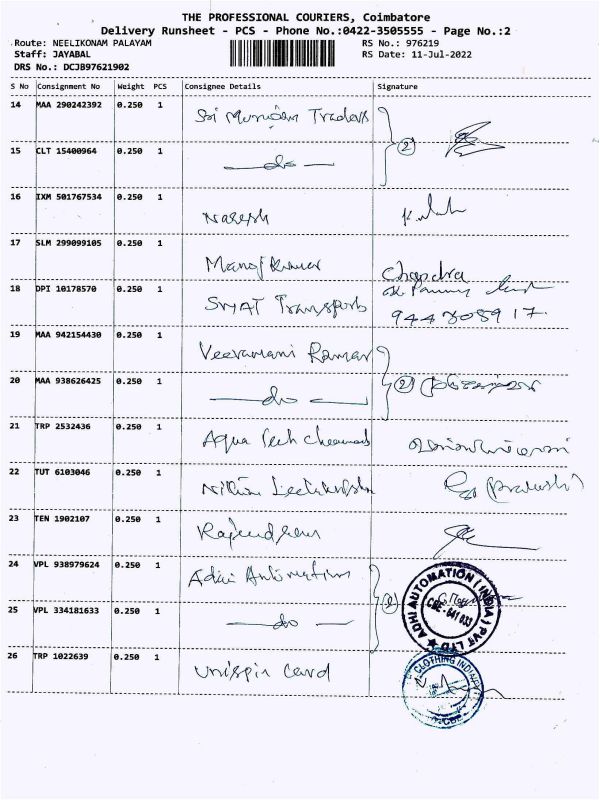 THE PROFESSIONAL COURIERS, Coimbatore
Delivery Runsheet - PCS - Phone No.:0422-3505555 - Page No.:2
Route: NEELIKONAM PALAYAM RS No.: 976219
Staff: JAYABAL RS Date: 11-Jul-2022
DRS No.: DCJB97621902
S No Consignment No Weight PCS Consignee Details Signature
14 MAA 290242392 0.250 1 Sri Murugan Traders
15 CLT 15400964 0.250 1 —do— (2)
16 IXM 501767534 0.250 1 Naresh
17 SLM 299099105 0.250 1 Manoj Kumar Chandra
18 DPI 10178570 0.250 1 Transports
19 MAA 942154430 0.250 1 Veeramani Kumar
20 MAA 938626425 0.250 1 —do— (2)
21 TRP 2532436 0.250 1 Aqua Tech
22 TUT 6103046 0.250 1
23 TEN 1902107 0.250 1
24 VPL 938979624 0.250 1 Adhi Automation
25 VPL 334181633 0.250 1 —do— (2)
ADHI AUTOMATION (INDIA) PVT LTD
CBE-641 033
26 TRP 1022639 0.250 1 Unispin Card
CLOTHING